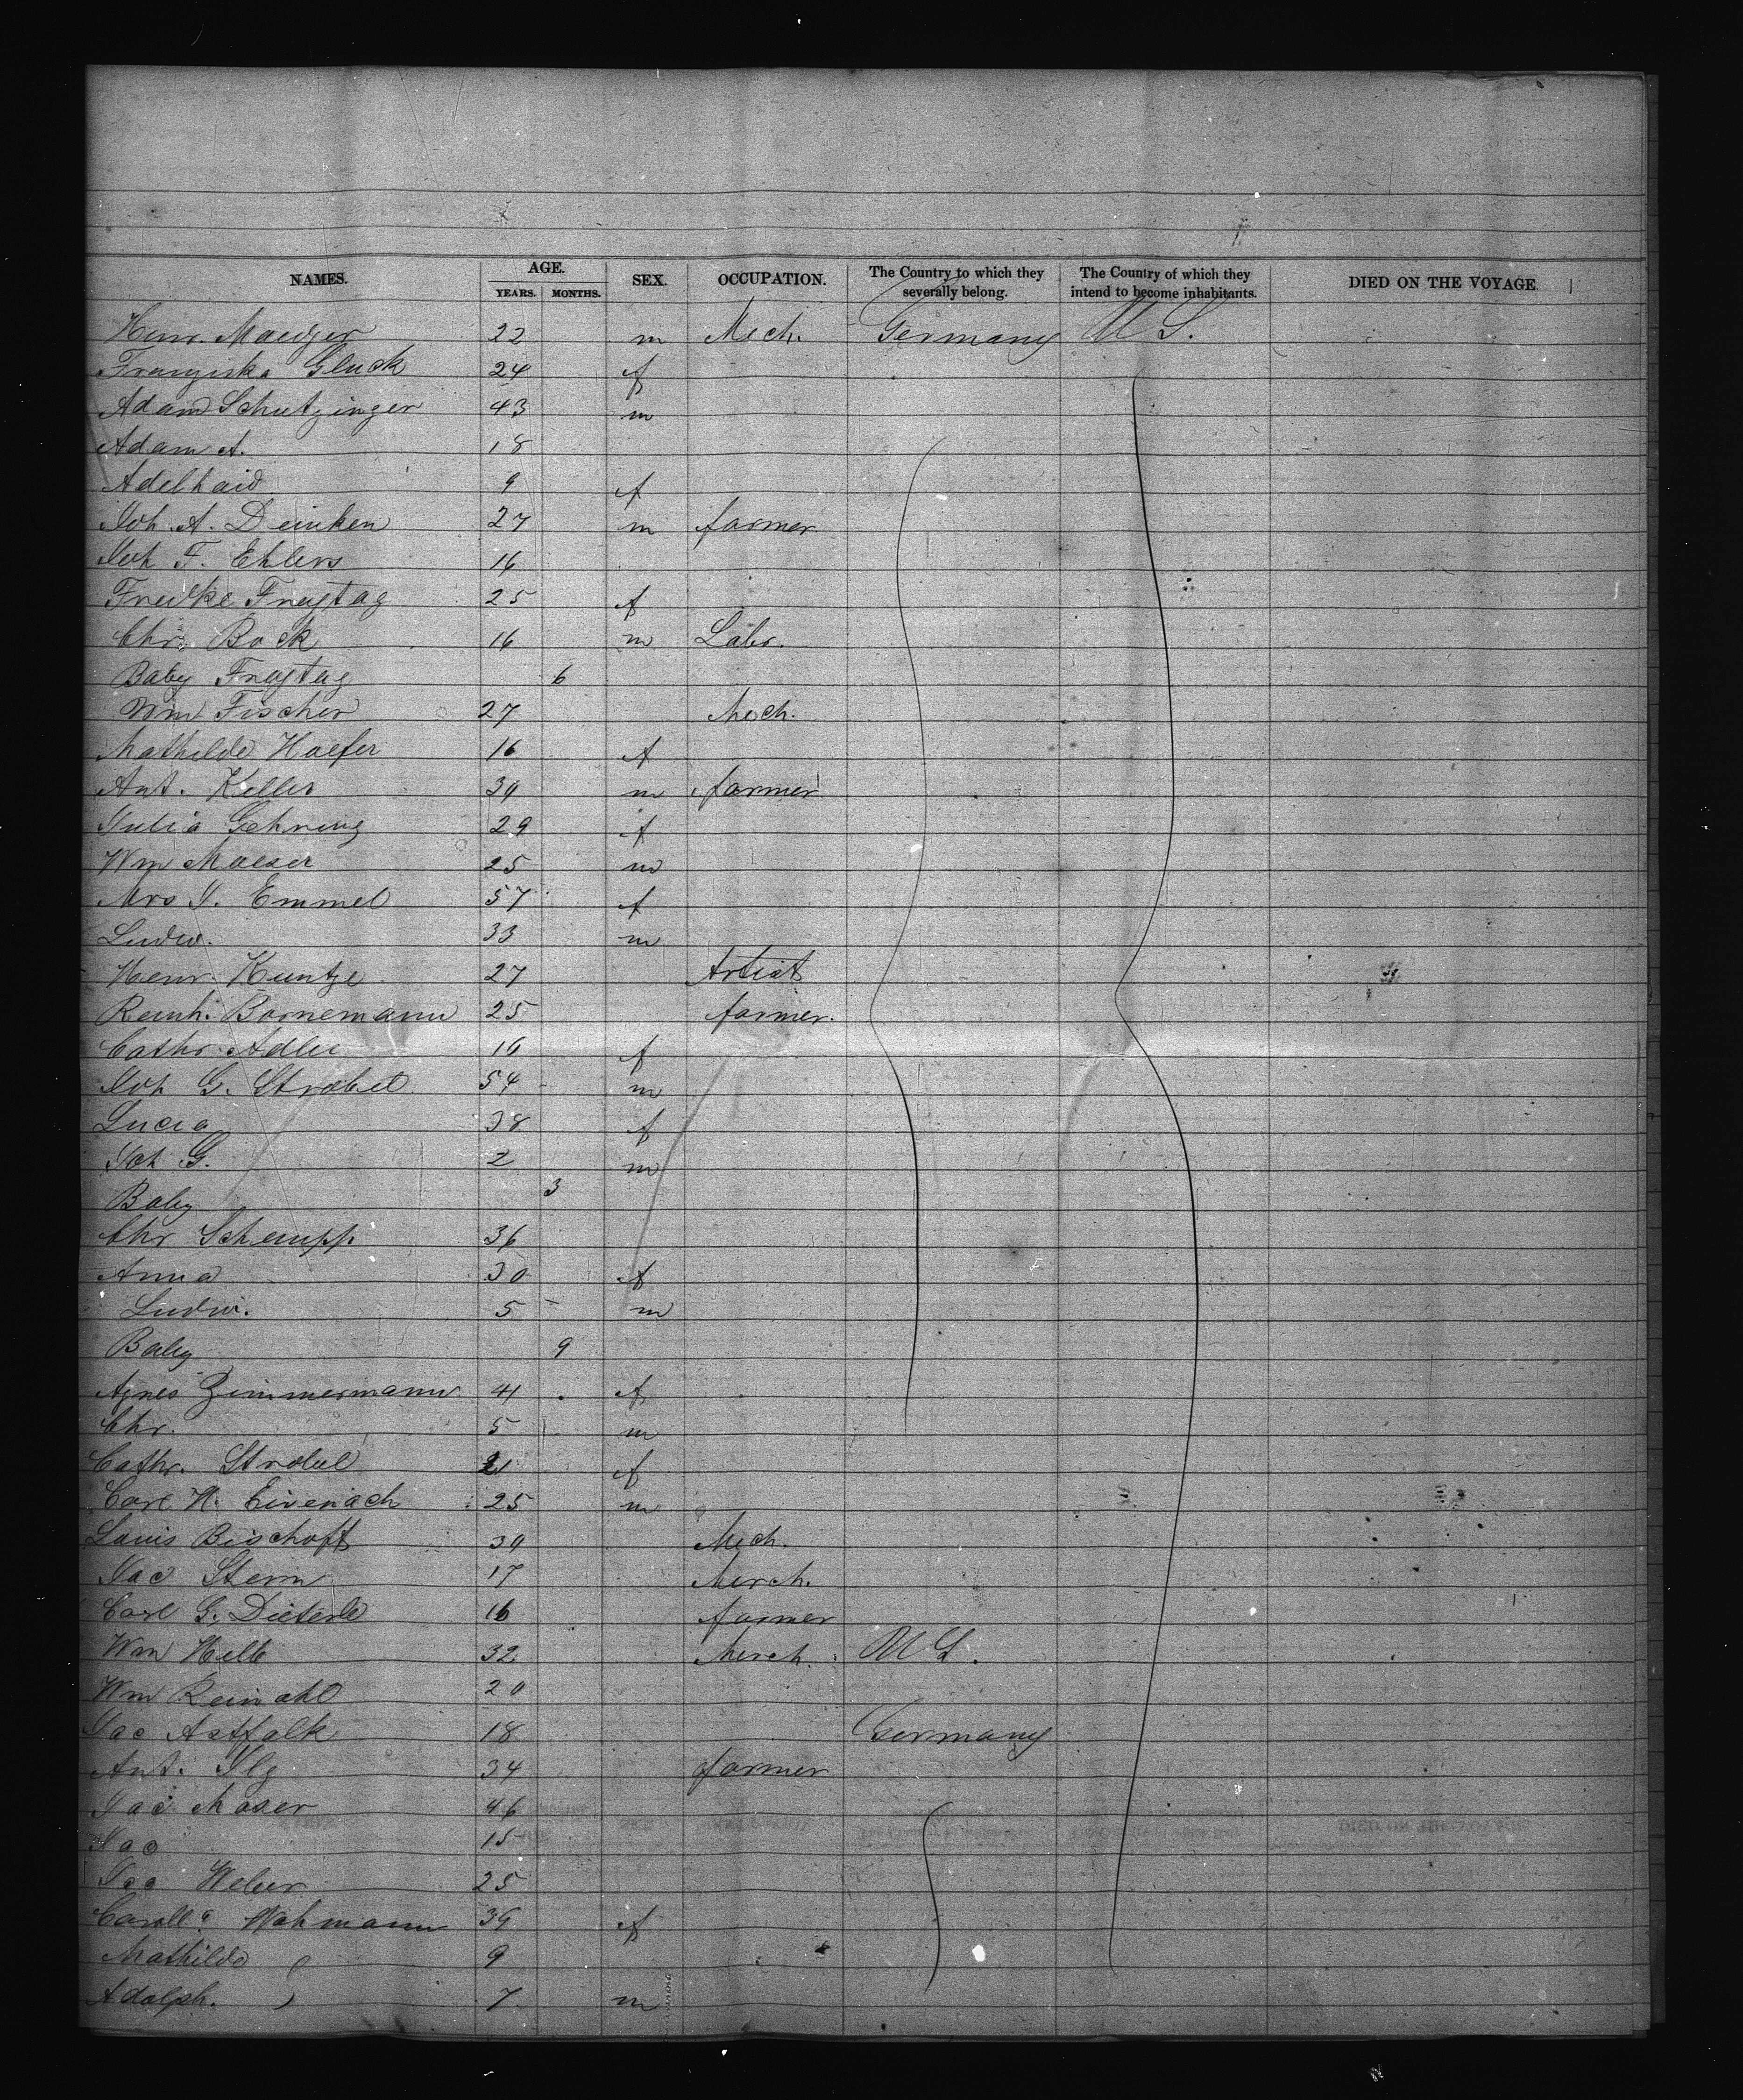 NAMES. AGE. YEARS. MONTHS. SEX. OCCUPATION. The Country to which they severally belong. The Country of which they intend to become inhabitants. DIED ON THE VOYAGE
Henr. 22 m Mech. Germany U S.
Franziska Gluck 24 f
Adam Schutzinger 43 m
Adam A. 18
Adelhaid 9 f
Joh. A. Deinken 27 m farmer
Joh F. Ehlers 16
Fredke Freytag 25 f
Chr. Bock 16 m Labr.
Baby Freytag 6
Wm Fischer 27 Mech.
Mathilde Haefer 16 f
Ant. Keller 30 m farmer
Julia Gehring 29 f
Wm Maeser 25 m
Mrs J. Emmel 57 f
Ludw. 33 m
Henr. Kuntze 27 Artist
Reinh. Bornemann 25 farmer.
Cathr. Adler 16 f
Joh G. Strobel 54 m
Lucia 38 f
Joh G. 2 m
Baby 3
Chr Schempp. 36
Anna 30 f
Ludw. 5 m
Baby 9
Agnes Zimmermann 41 f
Chr. 5 m
Cathr. Strobel 21 f
Carl H. Eivenach 25 m
Louis Bischoff 30 Mech.
Jac Stern 17 Merch.
Carl G. Dieterle 16 farmer
Wm Helb 32 Merch. U S.
Wm Reinohl 20
Jac Astfalk 18 Germany
Ant. Ilg 34 farmer
Jac Moser 46
Jac 15
Jac Weber 25
Wahmann f
Mathilde 9
Adolph. 7 m